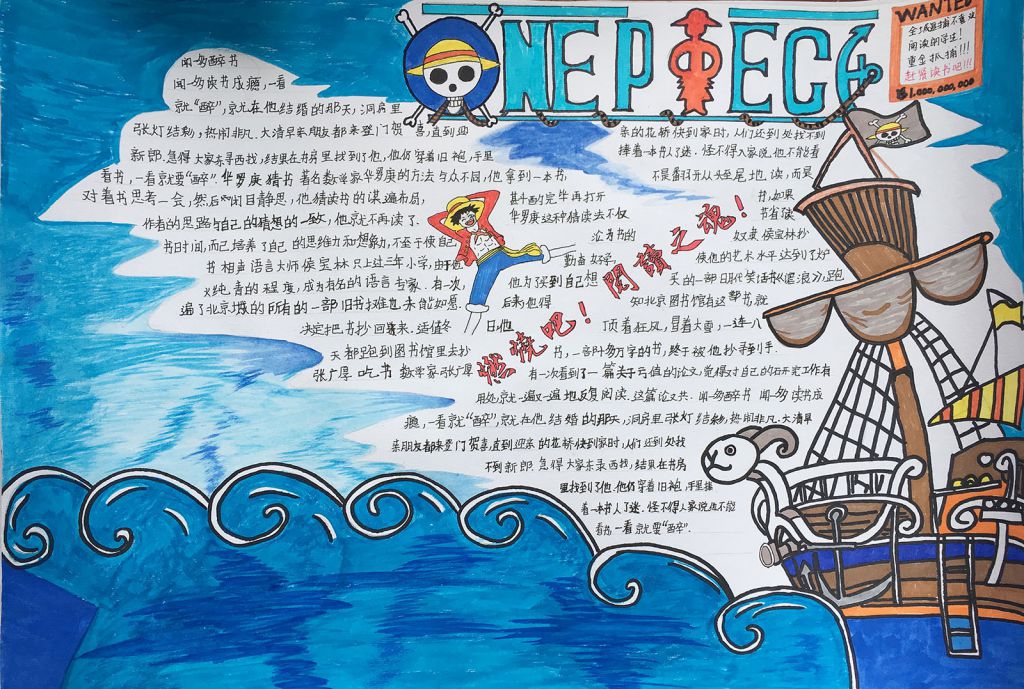 ONE PIECE
WANTED
全城追捕不喜欢
阅读的学生!
重金抓捕!!!
赶紧读书吧!!!
฿1,000,000,000
闻一多醉书
闻一多读书成瘾,一看
就“醉”,就在他结婚的那天,洞房里
张灯结彩,热闹非凡.大清早亲朋友都来登门贺 喜,直到迎
亲的花桥快到家时,人们还到处找不到
新郎.急得大家东寻西找,结果在书房里找到了他,他仍穿着旧袍,手里
捧着一本书入了迷.怪不得人家说他不能看
看书,一看就要“醉”.华罗庚猜书 著名数学家华罗庚的方法与众不同,他拿到一本书,
不是翻开从头至尾地读,而是
对着书思考一会,然后闭目静思,他猜读书的谋遍布局,
甚书的完毕再打开
书,如果
作者的思路与自己的猜想的一致,他就不再读了.
华罗庚这种猜读去不仅
节省读
书时间,而已培养了自己的思维力和想象力,不至于使自己
沦为书的
奴隶 侯宝林抄
书 相声语言大师侯宝林只上过三年小学,由于他
勤奋好学,
使他的艺术水平达到了炉
火纯青的程度,成为有名的语言专家.有一次,
他为了买到自己想
买的一部明代笑话书《谑浪》,跑
遍了北京城的所有的一部旧书摊也未能如愿.
后来他得
知北京图书馆有这部书,就
决定把书抄回来.适值冬
日,他
顶着狂风,冒着大雪,一连八
天都跑到图书馆里去抄
书,一部十多万字的书,终于被他抄寻到手.
张广厚吃书 数学家张广厚
有一次看到了一篇关于亏值的论文,觉得对自己的研究工作有
用处,就一遍又一遍地反复阅读.这篇论文共.闻一多醉书 闻一多读书成
瘾,一看就“醉”,就在他结婚的那天,洞房里张灯结彩,热闹非凡.大清早
亲朋友都来登门贺喜,直到迎亲的花桥快到家时,人们还到处找
不到新郎.急得大家东寻西找,结果在书房
里找到了他.他仍穿着旧袍,手里捧
着一本书入了迷.怪不得人家说他不能
看书,一看就要“醉”.
燃烧吧!閱讀之魂!